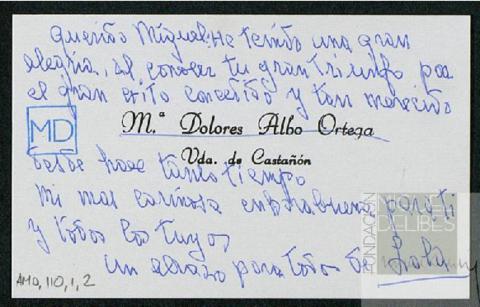 Querido Miguel: He tenido una gran
alegría, al conocer tu gran triunfo por
el gran exito concedido y tan merecido
MD
M.ª Dolores Albo Ortega
Vda. de Castañón
desde hace tanto tiempo
Mi mas cariñosa enhorabuena para ti
y todos los tuyos
Un abrazo para todos de Lola
AMD, 110, 1, 2
FUNDACIÓN
MIGUEL
DELIBES